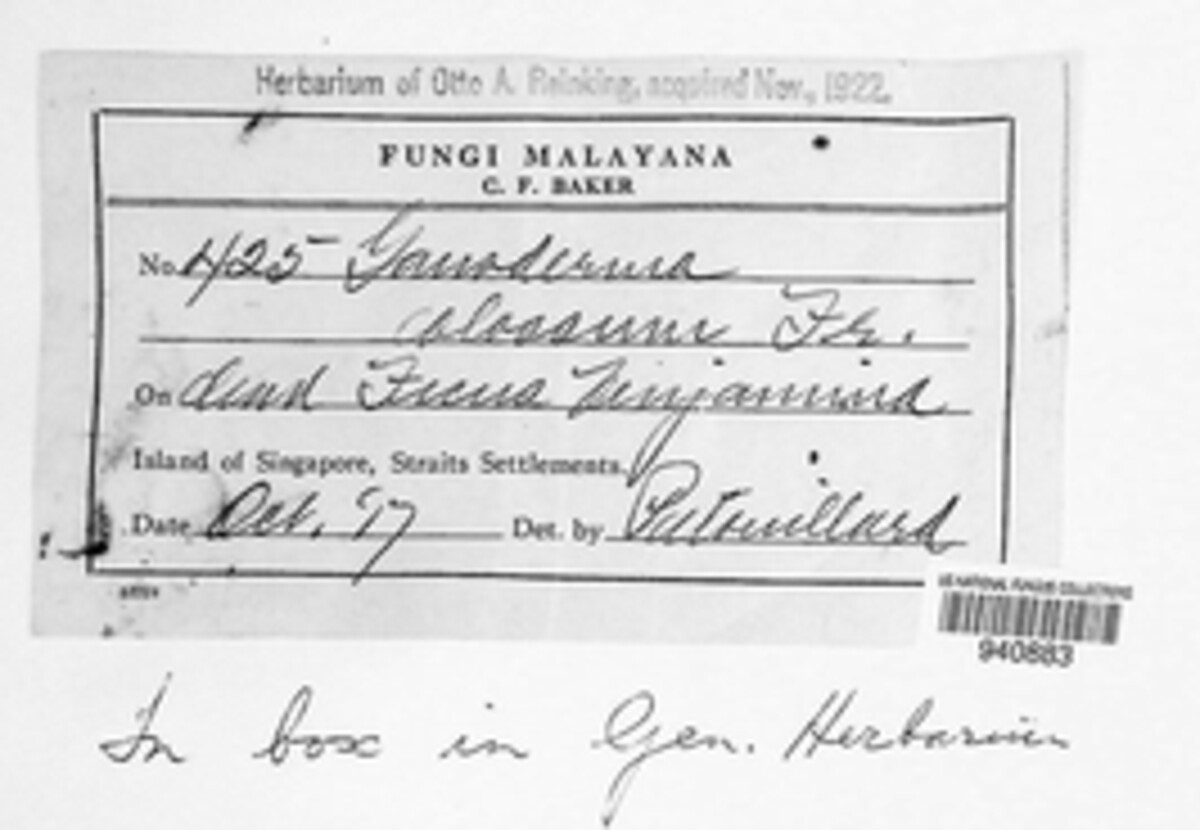 Herbarium of Otto A. Reinking, acquired Nov., 1922.
FUNGI MALAYANA
C. F. BAKER
No. 425 Ganoderma
colossum Fr.
On dead Ficus Benjamina
Island of Singapore, Straits Settlements.
Date Oct. '17 Det. by Patouillard
US NATIONAL FUNGUS COLLECTIONS
940883
In box in Gen. Herbarium